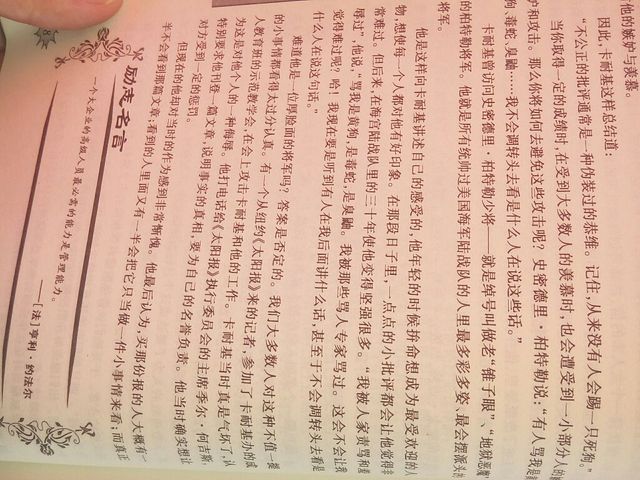 他的嫉妒与羡慕。
因此,卡耐基这样总结道:
“不公正的批评通常是一种伪装过的恭维。记住,从来没有人会踢一只死狗。”
当你取得一定的成绩时,在受到大多数人的羡慕时,也会遭受到一小部分人的
和攻击。那么你将如何去避免这些攻击呢?史密德里·柏特勒说:“有人骂我是
狗、毒蛇、臭鼬……我不会调转头去看是什么人在说这些话。”
卡耐基曾访问史密德里·柏特勒少将——就是绰号叫做老“锥子眼”、“地狱恶魔
的柏特勒将军。他就是所有统帅过美国海军陆战队的人里最多彩多姿、最会摆派头的
将军。
他是这样向卡耐基讲述自己的感受的,他年轻的时候拼命想成为最受欢迎的人
物,想使每一个人都对他有好印象。在那段日子里,一点点的小批评都会让他觉得非
常难过。但后来,在海军陆战队里的三十年使他变得坚强很多。“我被人家责骂和羞
辱过”,他说,“骂我是黄狗,是毒蛇,是臭鼬。我被那些骂人专家骂过。这会不会让我
觉得难过呢?哈!我现在要是听到有人在我后面讲什么话,甚至于不会调转头去看是
什么人在说这句话。”
难道他是一位厚脸面的将军吗?答案是否定的。我们大多数人对这种不值一提
的小事情都看得太过分认真。有一个从纽约《太阳报》来的记者,参加了卡耐基办的成
人教育班的示范教学会,在会上攻击卡耐基和他的工作。卡耐基当时真是气坏了,认
为这是对他个人的一种侮辱。他打电话给《太阳报》执行委员会的主席季尔·何吉斯,
特别要求他刊登一篇文章,说明事实的真相,要为自己的名誉负责。他当时确实想让
对方受到一定的惩罚。
但现在的他却对当时的作为感到非常惭愧。他最后认为,买那份报的人大概有一
半不会看到那篇文章;看到的人里面又有一半会把它只当做一件小事情来看;而真正
励志名言
一个大企业的高级人员最必需的能力是管理能力。
——[法]亨利·约法尔